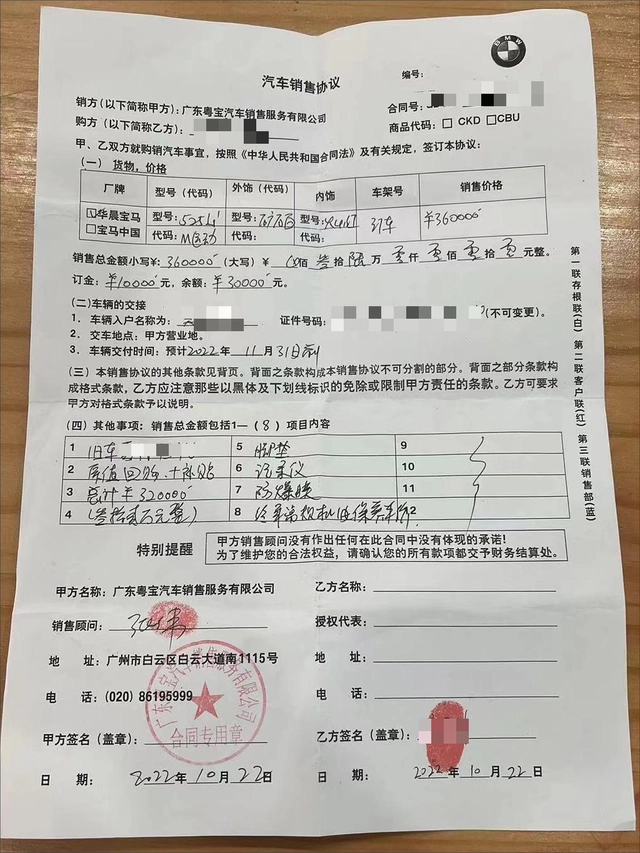 BMW
汽车销售协议
编号:
销方(以下简称甲方):广东粤宝汽车销售服务有限公司
合同号:
购方(以下简称乙方):
商品代码:□ CKD □CBU
甲、乙双方就购销汽车事宜,按照《中华人民共和国合同法》及有关规定,签订本协议:
(一) 货物,价格
厂牌 型号(代码) 外饰(代码) 内饰 车架号 销售价格
华晨宝马 型号(代码): 525Li 型号(代码): 矿石白 型号(代码): ¥360000
□宝马中国 代码: M运动 代码: 代码:
销售总金额小写¥: 360000 (大写)¥ 佰 叁拾 陆万 零仟 零佰 零拾 零元整。
订金: ¥10000元, 余额: ¥30000元。
(二)车辆的交接
1. 车辆入户名称为: 证件号码: (不可变更)。
2. 交车地点:甲方营业地。
3. 车辆交付时间:预计2022年 11月31日前
(三)本销售协议的其他条款见背页。背面之条款构成本销售协议不可分割的部分。背面之部分条款构
成格式条款,乙方应注意那些以黑体及下划线标识的免除或限制甲方责任的条款。乙方可要求
甲方对格式条款予以说明。
(四)其他事项:销售总金额包括1—(8)项目内容
1 旧车 5 脚垫 9
2 原值回购+补贴 6 记录仪 10
3 总计¥320000 7 防爆膜 11
4 (叁拾贰万元整) 8 12
特别提醒
甲方销售顾问没有作出任何在此合同中没有体现的承诺!
为了维护您的合法权益,请确认您的所有款项都交予财务结算处。
甲方名称:广东粤宝汽车销售服务有限公司 乙方名称:
销售顾问: 授权代表:
地 址:广州市白云区白云大道南1115号 地 址:
电 话:(020) 86195999 电 话:
广东粤宝汽车销售服务有限公司
合同专用章
甲方签名(盖章): 乙方签名(盖章):
日 期: 2022年10月22日 日 期: 2022年10月22日
第一联存根联(白) 第二联客户联(红) 第三联销售部(蓝)